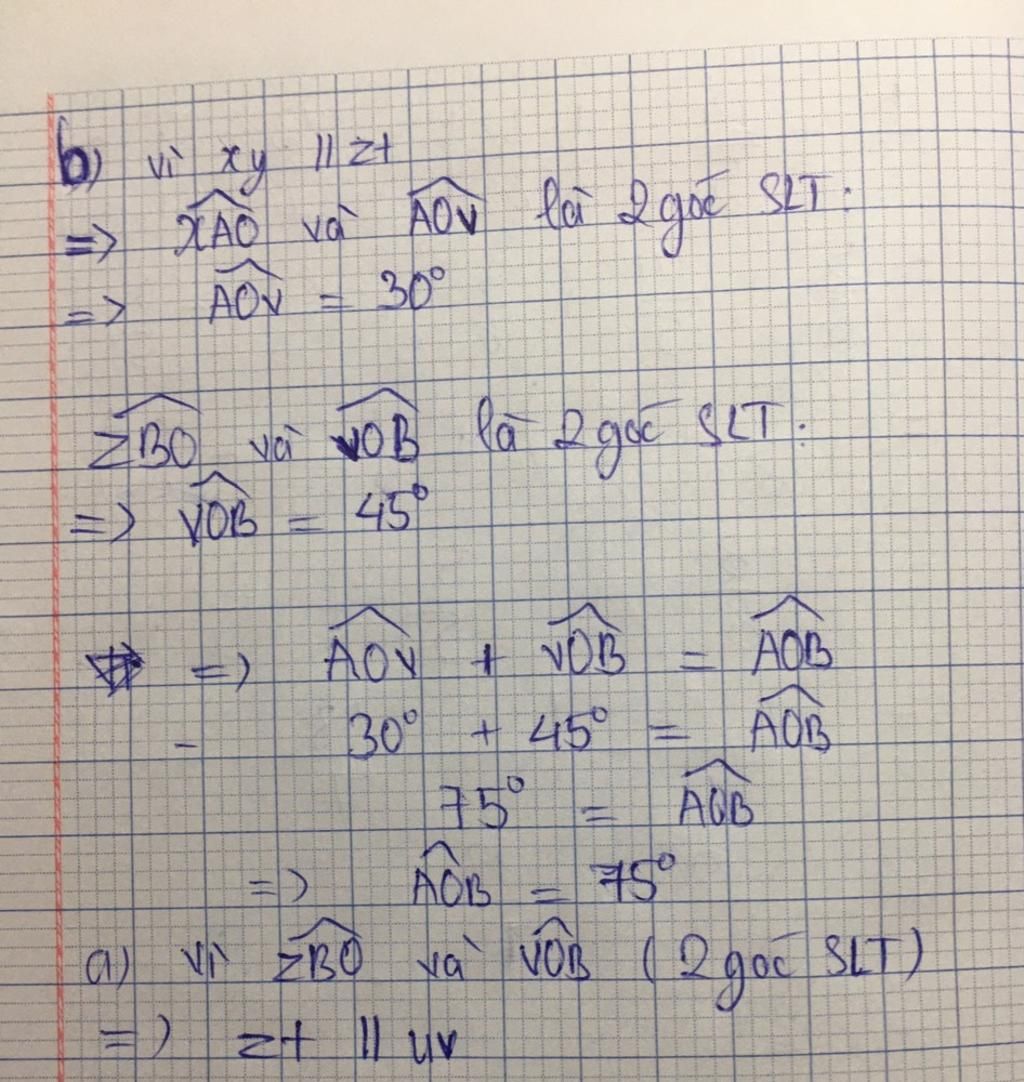 b) vì xy // zt
=> \widehat{xAO} và \widehat{AOv} là 2 góc SLT.
=> \widehat{AOv} = 30°
\widehat{zBO} và \widehat{vOB} là 2 góc SLT.
=> \widehat{vOB} = 45°
=> \widehat{AOv} + \widehat{vOB} = \widehat{AOB}
- 30° + 45° = \widehat{AOB}
75° = \widehat{AOB}
=> \widehat{AOB} = 75°
a) Vì \widehat{zBO} và \widehat{vOB} (2 góc SLT)
=> zt // uv